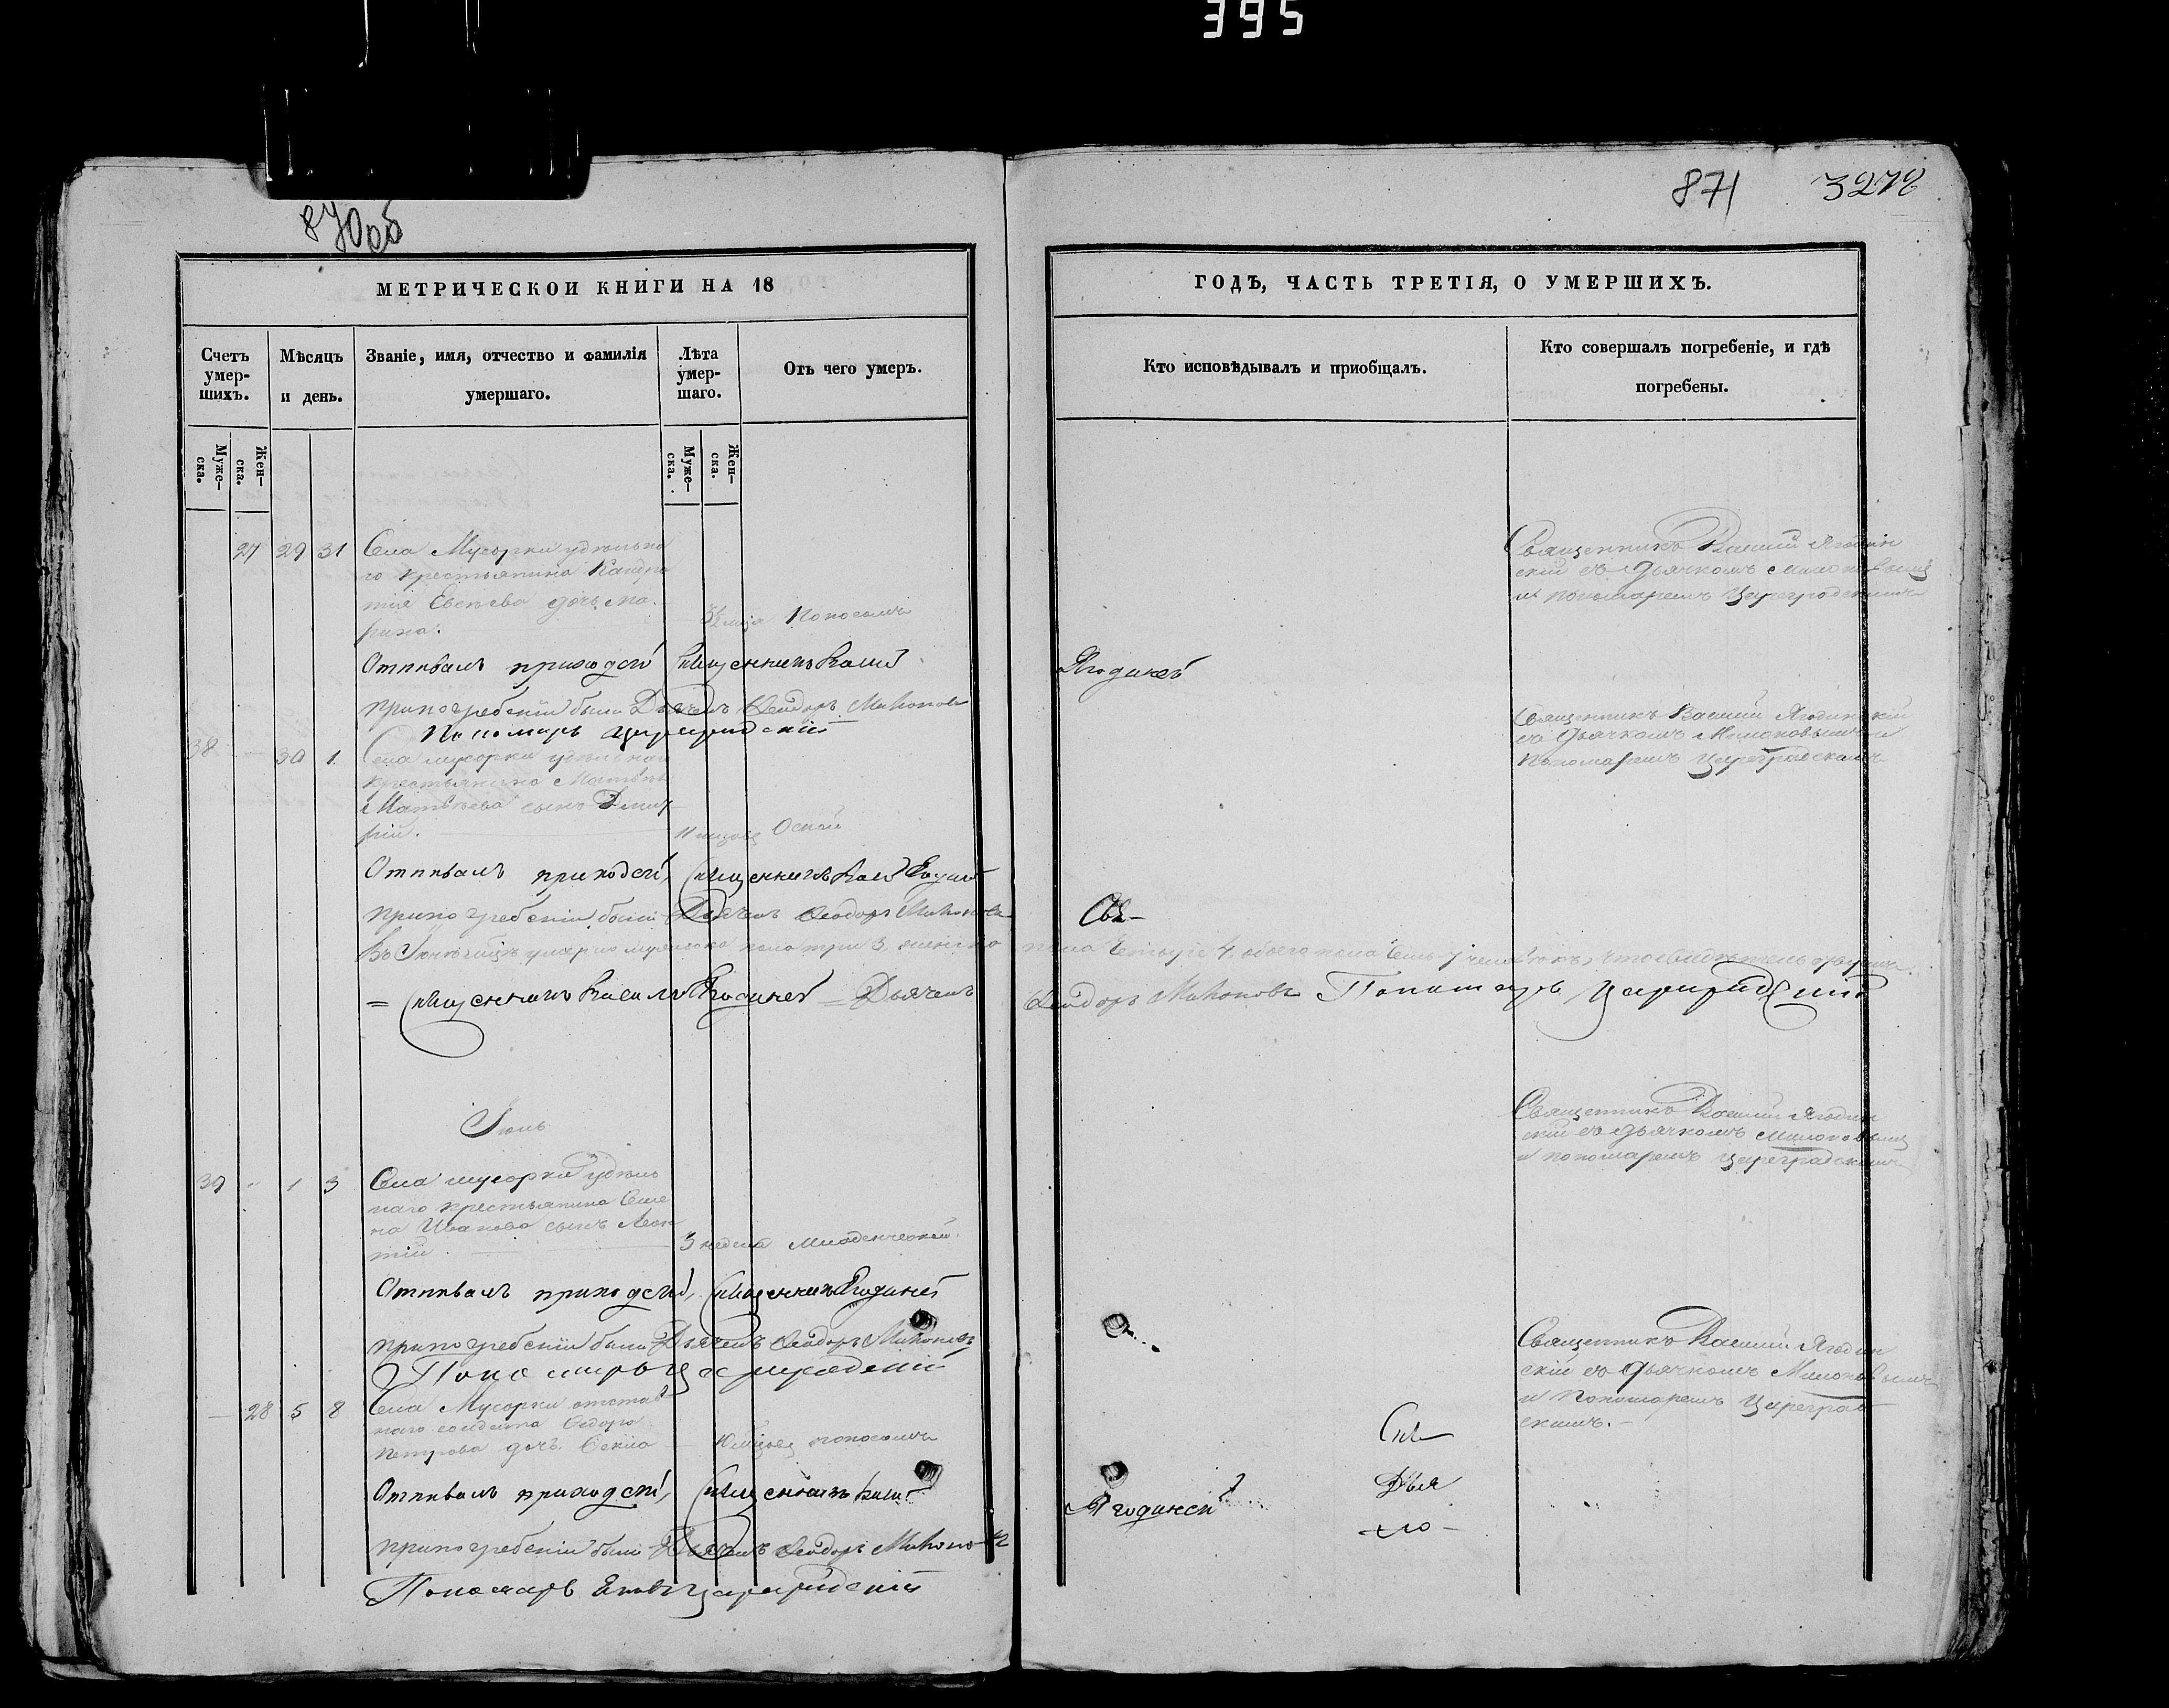 395
870об
871 3272
МЕТРИЧЕСКОИ КНИГИ НА 18
ГОДЪ, ЧАСТЬ ТРЕТІЯ, О УМЕРШИХЪ.
Счетъ умер-
шихъ.
Мѣсяцъ
и день.
Званіе, имя, отчество и фамилія
умершаго.
Лѣта
умер-
шаго.
Отъ чего умеръ.
Кто исповѣдывалъ и приобщалъ.
Кто совершалъ погребеніе, и гдѣ
погребены.
Муже-
ска.
Жен-
ска.
Муже-
ска.
Жен-
ска.
27 29 31 Села Мусорки удѣльна
го крестьянина Кандра
тія Евсѣева дочь Ма-
рина.
Поносомъ
Священникъ Василій Ягодин
скій съ дьячкомъ Милоновымъ
и пономаремъ Цареградскимъ
Отпѣвалъ приходскій Священникъ Василій
Ягодинскій
При погребеніи были Дьячекъ Ѳеодоръ Милоновъ
Пономарь Цареградскій
38 30 1 Села Мусорки удѣльнаго
крестьянина Матвѣя
Матвѣева сынъ Дмит-
рій.
Оспой
Священникъ Василій Ягодинскій
съ дьячкомъ Милоновымъ и
пономаремъ Цареградскимъ
Отпѣвалъ приходскій Священникъ Васи Ягодин
Свя-
При погребеніи были Дьячекъ Ѳеодоръ Милоновъ
Въ Іюнѣ мѣсяцѣ умерло мужеска пола три 3 женска пола четыре 4 обоего пола семь 7 человѣкъ, что свидѣтельствуемъ.
= Священникъ Василій Ягодинскій = Дьячекъ Ѳеодоръ Милоновъ Пономарь Цареградскій
Іюль
39 1 3 Села Мусорки удѣль
наго крестьянина Семе
на Иванова сынъ Леон
тій.
3 недѣли Младенческой.
Священникъ Василій Ягодин
скій съ дьячкомъ Милоновымъ
и пономаремъ Цареградскимъ
Отпѣвалъ приходскій, Священникъ Ягодинскій
При погребеніи были Дьячекъ Ѳеодоръ Милоновъ
Пономарь Цареградскій
28 5 8 Села Мусорки отстав
наго солдата Ѳедора
Петрова дочь
поносомъ
Священникъ Василій Ягодин
скій съ дьячкомъ Милоновымъ
и пономаремъ Цареград
скимъ.
Свя
Отпѣвалъ приходскій, Священникъ Васи
Ягодинскій
Дья
При погребеніи были Дьячекъ Ѳеодоръ Милоновъ
Пономарь Цареградскій